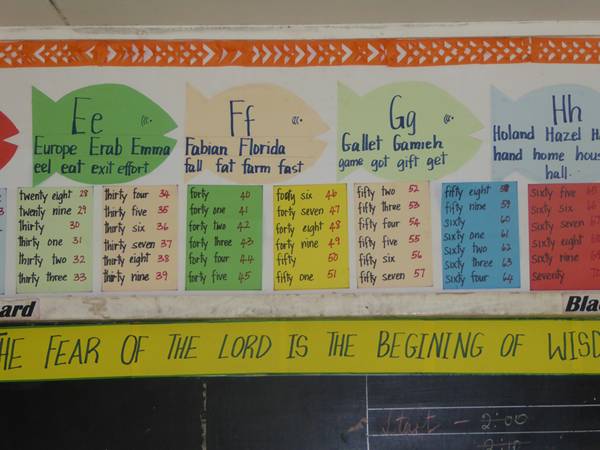 Ee
Europe Erab Emma
eel eat exit effort
Ff
Fabian Florida
fall fat farm fast
Gg
Gallet Gamieh
game got gift get
Hh
Holand Hazel H
hand home hous
hall
twenty eight 28
twenty nine 29
thirty 30
thirty one 31
thirty two 32
thirty three 33
thirty four 34
thirty five 35
thirty six 36
thirty seven 37
thirty eight 38
thirty nine 39
forty 40
forty one 41
forty two 42
forty three 43
forty four 44
forty five 45
forty six 46
forty seven 47
forty eight 48
forty nine 49
fifty 50
fifty one 51
fifty two 52
fifty three 53
fifty four 54
fifty five 55
fifty six 56
fifty seven 57
fifty eight 58
fifty nine 59
sixty 60
sixty one 61
sixty two 62
sixty three 63
sixty four 64
sixty five
sixty six
sixty seven
sixty eight
sixty nine
seventy
ard
Bla
HE FEAR OF THE LORD IS THE BEGINING OF WISD
Start - 2:00
2:10